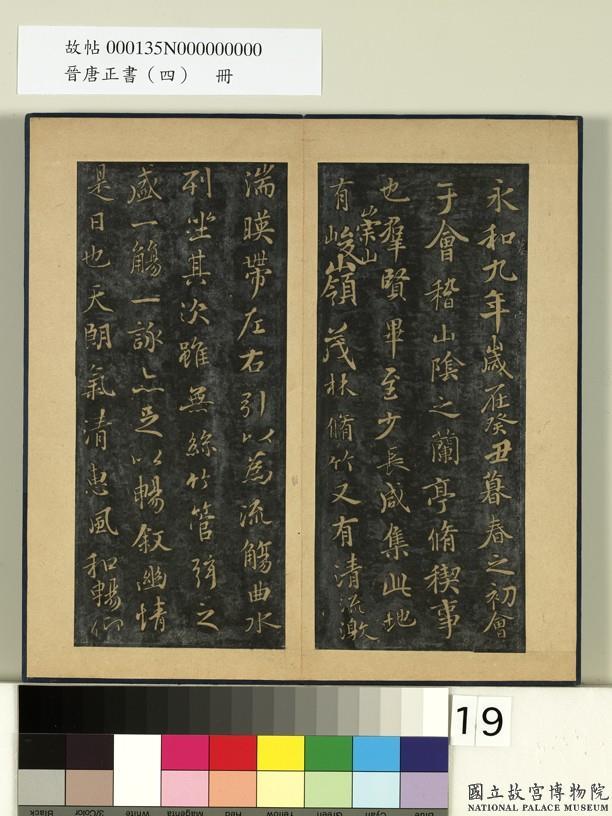 故帖 000135N000000000
晉唐正書（四）　冊
永和九年歲在癸丑暮春之初會
于會稽山陰之蘭亭脩稧事
也羣賢畢至少長咸集此地
有崇山峻嶺茂林脩竹又有清流激
湍暎帶左右引以為流觴曲水
列坐其次雖無絲竹管弦之
盛一觴一詠亦足以暢叙幽情
是日也天朗氣清惠風和暢仰
19
Black
3/Color
White
Magenta
Red
Yellow
Green
Cyan
Blue
國立故宮博物院
NATIONAL PALACE MUSEUM